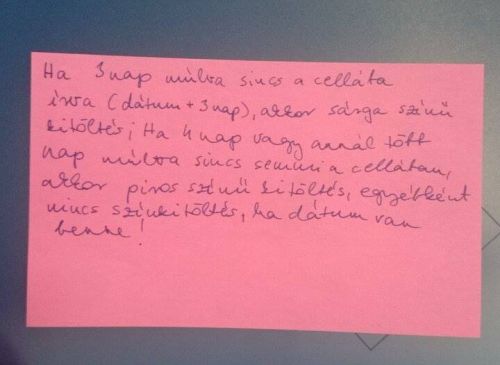 Ha 3 nap múlva sincs a cellába
írva (dátum + 3 nap), akkor sárga színű
kitöltés; Ha 4 nap vagy annál több
nap múlva sincs semmi a cellában,
akkor piros színű kitöltés, egyébként
nincs színkitöltés, ha dátum van
benne!